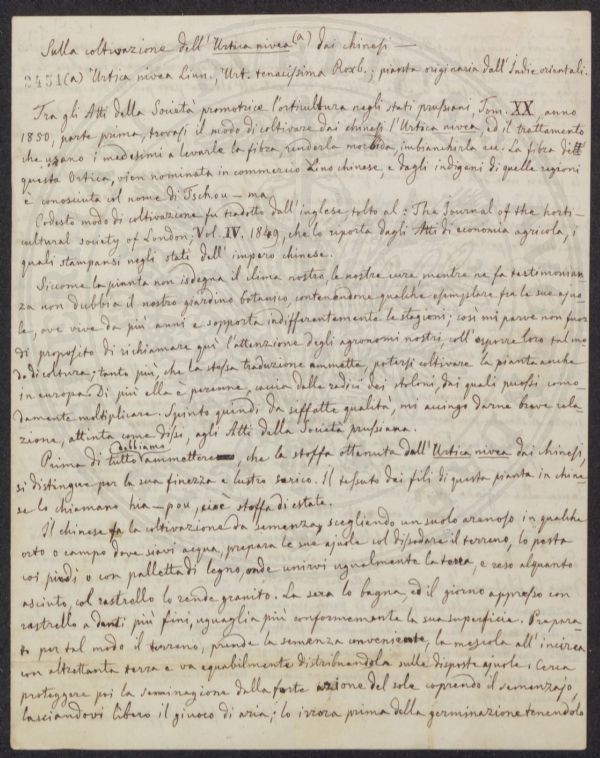 Sulla coltivazione dell'Urtica nivea (a) dai chinesi —
2431 (a) Urtica nivea Linn., Urt. tenacissima Roxb.; pianta originaria dall'Indie orientali.
Tra gli Atti della Società promotrice l'orticultura negli stati prussiani, Tom. XX, anno
1850, parte prima, trovasi il modo di coltivare dai chinesi l'Urtica nivea, ed il trattamento
che usano i medesimi a levarle la fibra, renderla morbida, imbianchirla ecc. La fibra di
questa Ortica, vien nominata in commercio Lino chinese, e dagli indigeni di quelle regioni
è conosciuta col nome di Tschou-ma.
Codesto modo di coltivazione fu tradotto dall'inglese, tolto al: The Journal of the horti-
cultural society of London, Vol. IV. 1849, che lo riporta dagli Atti di economia agricola, i
quali stampansi negli stati dell'impero chinese.
Siccome la pianta non isdegna il clima nostro, le nostre cure mentre ne fa testimonian-
za non dubbia il nostro giardino botanico, contenendone qualche esemplare fra le sue ajuo-
le, ove vive da più anni e sopporta indifferentemente le stagioni; così mi parve non fuor
di proposito di richiamare quì l'attenzione degli agronomi nostri, coll'esporre loro tal mo
do di coltura; tanto più, che la stessa traduzione ammette, potersi coltivare la pianta anche
in europa. Di più ella è perenne, caccia dalle radici dei stoloni, dai quali puossi como
damente moltiplicare. Spinto quindi da siffatte qualità, mi accingo darne breve rela
zione, attinta come dissi, agli Atti della Società prussiana.
Prima di tutto vogliamo ammettere, che la stoffa ottenuta dall'Urtica nivea dai chinesi,
si distingue per la sua finezza e lustro serico. Il tessuto dei fili di questa pianta in chine-
se lo chiamano hia-pou, cioè stoffa di estate.
Il chinese fa la coltivazione da semenza, scegliendo un suolo arenoso in qualche
orto o campo dove siavi acqua, prepara le sue ajuole col dissodare il terreno, lo pesta
coi piedi o con palletta di legno, onde unirvi ugualmente la terra, e reso alquanto
asciuto, col rastrello lo rende granito. La sera lo bagna, ed il giorno appresso con
rastrello a denti più fini, uguaglia più conformemente la sua superficie. Prepara-
to per tal modo il terreno, prende la semenza conveniente, la mescola all'incirca
con altrettanta terra e va equabilmente distribuendola sulle disposte ajuole. Cerca
proteggere poi la seminagione dalla forte azione del sole coprendo il semenzajo,
lasciandovi libero il giuoco di aria; lo irrora prima della germinazione tenendolo